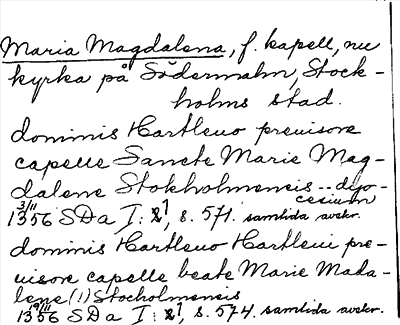 Maria Magdalena, f. kapell, nu
kyrka på Södermalm, Stock-
holms stad.
dominis Hartleuo preuisore
capelle Sancte Marie Mag-
dalene Stokholmensis -- dyo-
cesium
3/11
1356 SDa I: 2, s. 571. samtida avskr.
dominis Hartleuo Hartleui pre-
uisore capelle beate Marie Mada-
lene (!) Stocholmensis
19/11
1356 SDa I: 2, s. 574. samtida avskr.